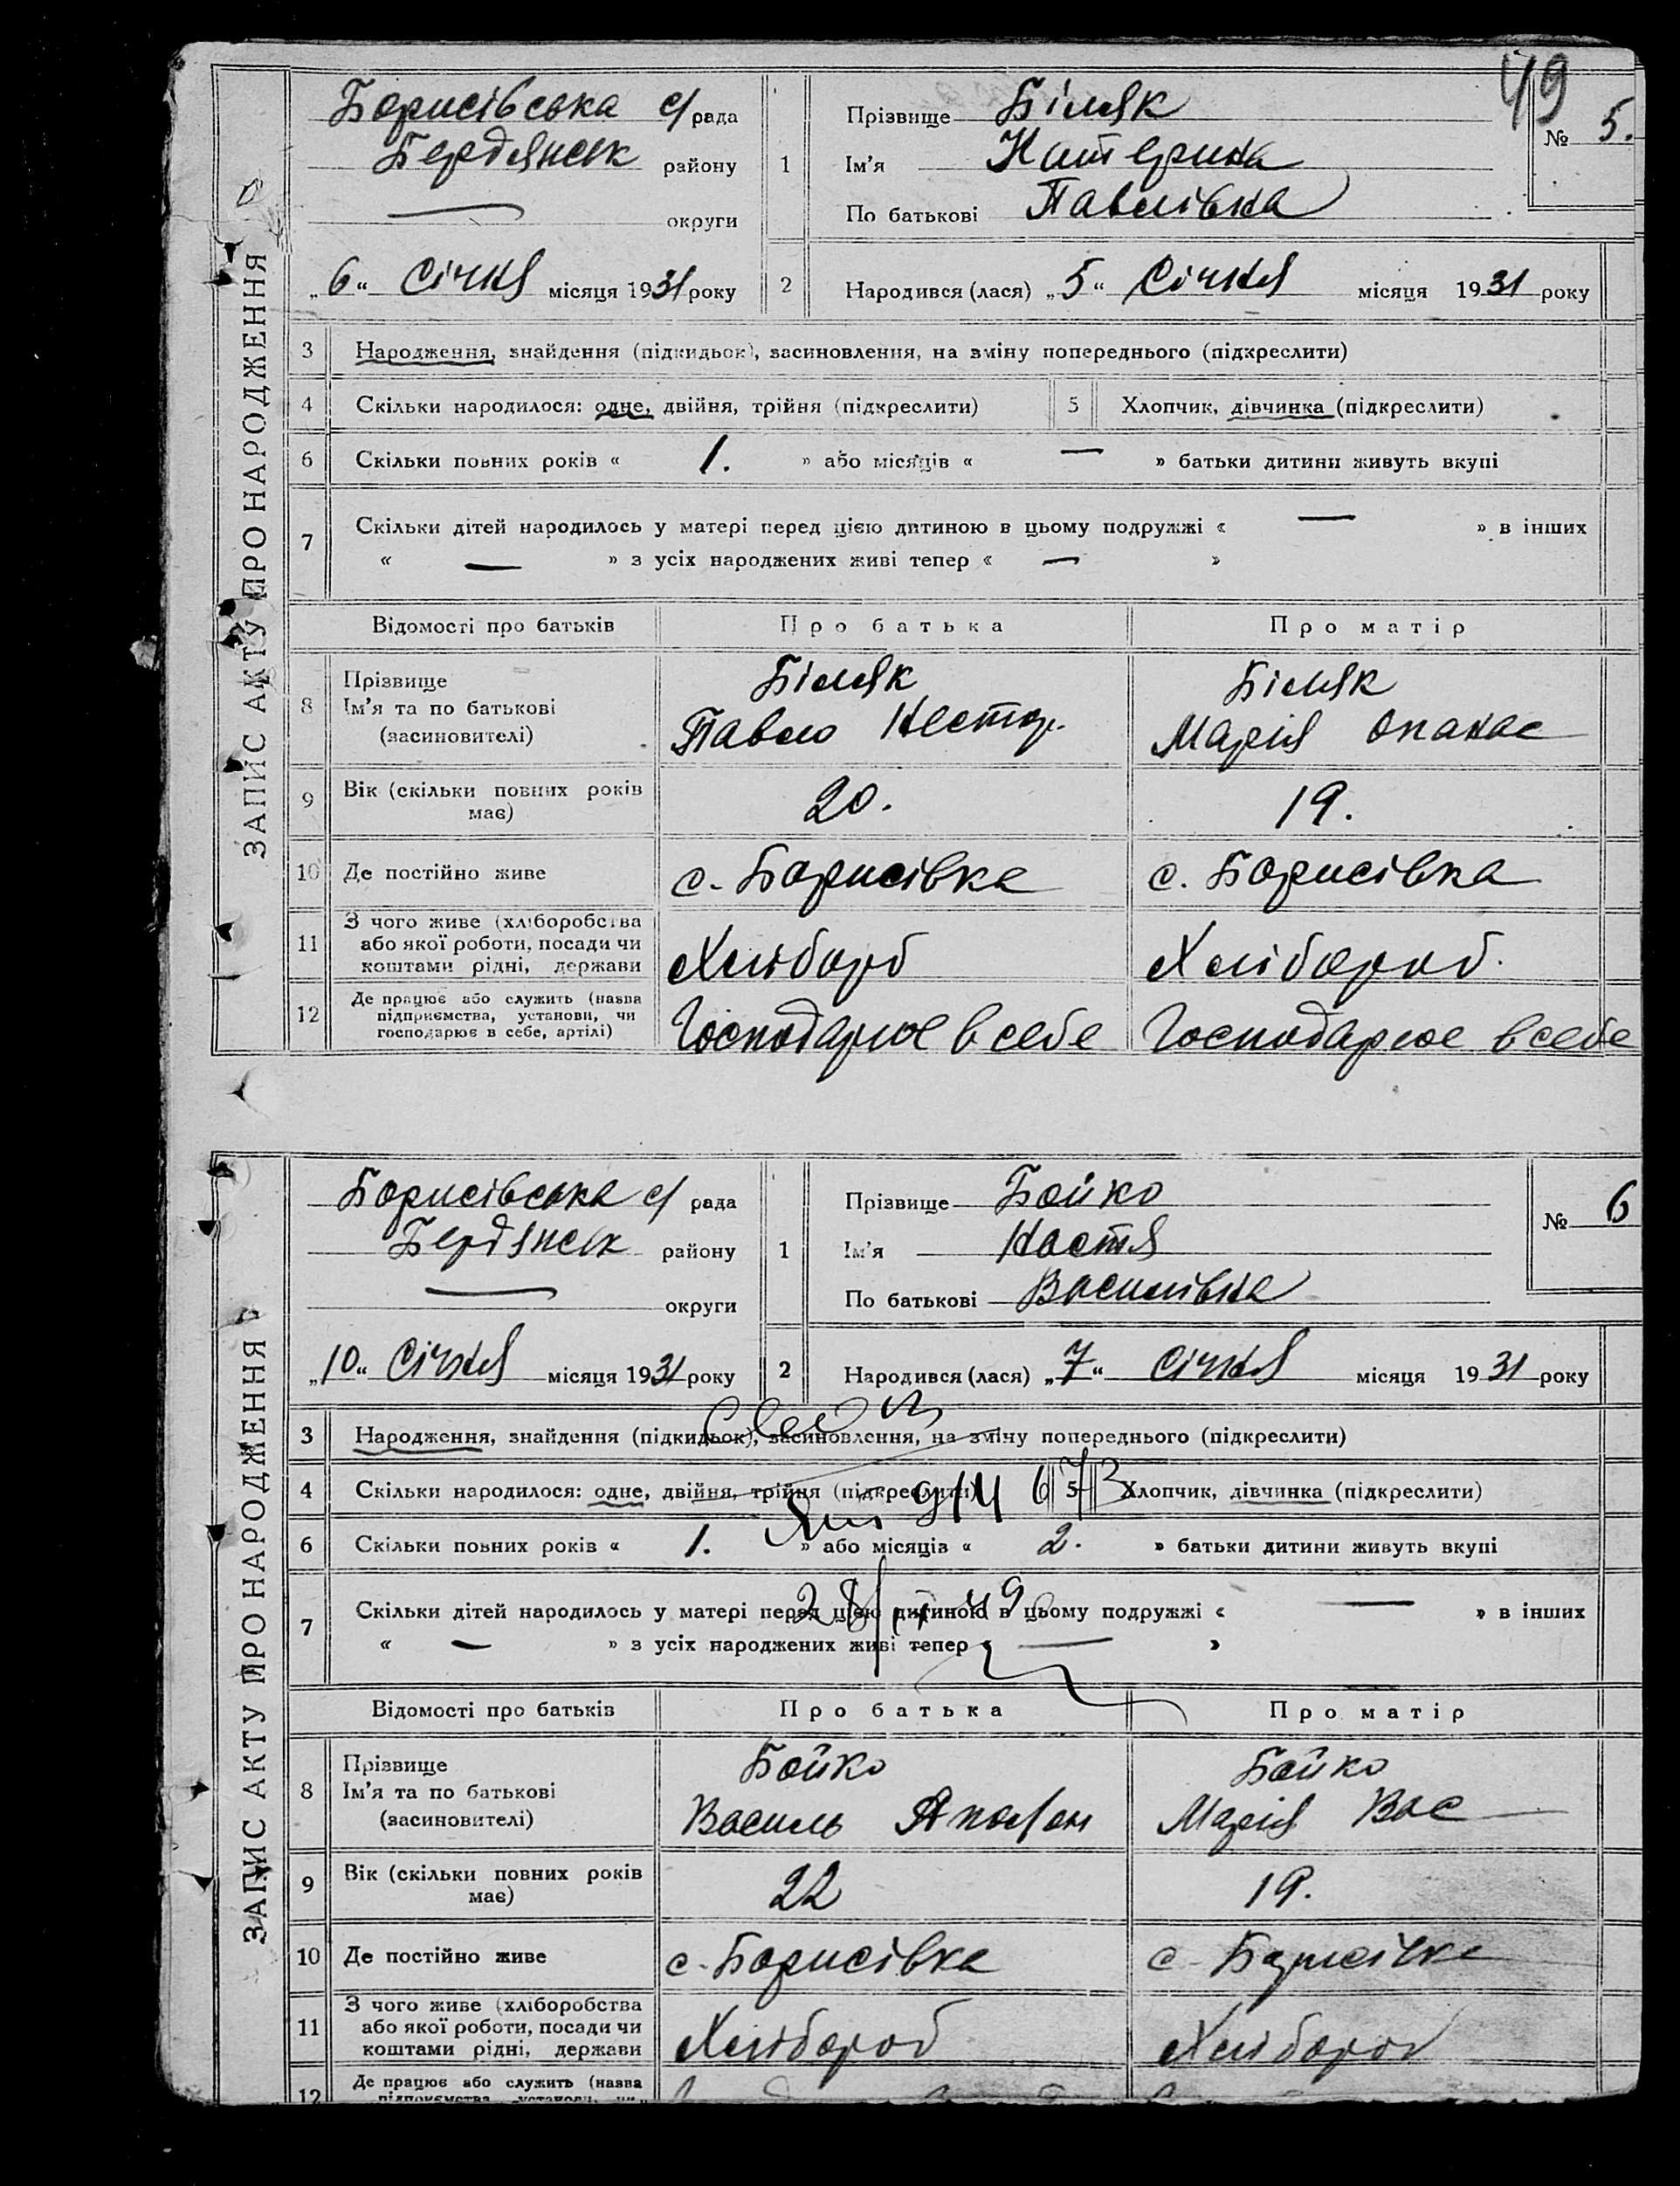 49
ЗАПИС АКТУ ПРО НАРОДЖЕННЯ
Борисівська с/рада
Бердянськ району
— округи
„6“ Січня місяця 1931 року
1
Прізвище Біляк
Ім'я Катерина
По батькові Павлівна
№ 5.
2
Народився (лася) „5“ Січня місяця 1931 року
3 Народження, знайдення (підкидьок), засиновлення, на зміну попереднього (підкреслити)
4 Скільки народилося: одне, двійня, трійня (підкреслити) 5 Хлопчик, дівчинка (підкреслити)
6 Скільки повних років « 1. » або місяців « — » батьки дитини живуть вкупі
7 Скільки дітей народилось у матері перед цією дитиною в цьому подружжі « — » в інших
« — » з усіх народжених живі тепер « — »
Відомості про батьків Про батька Про матір
8 Прізвище Біляк Біляк
Ім'я та по батькові Павло Нестор. Марія Опанас
(засиновителі)
9 Вік (скільки повних років має) 20. 19.
10 Де постійно живе с. Борисівка с. Борисівка
11 З чого живе (хліборобства або якої роботи, посади чи коштами рідні, держави Хлібороб Хлібороб.
12 Де працює або служить (назва підприємства, установи, чи господарює в себе, артілі) Господарює в себе Господарює в себе
ЗАПИС АКТУ ПРО НАРОДЖЕННЯ
Борисівська с/рада
Бердянськ району
— округи
„10“ Січня місяця 1931 року
1
Прізвище Бойко
Ім'я Настя
По батькові Василівна
№ 6
2
Народився (лася) „7“ Січня місяця 1931 року
3 Народження, знайдення (підкидьок), засиновлення, на зміну попереднього (підкреслити)
4 Скільки народилося: одне, двійня, трійня (підкреслити) 5 Хлопчик, дівчинка (підкреслити)
6 Скільки повних років « 1. » або місяців « 2. » батьки дитини живуть вкупі
7 Скільки дітей народилось у матері перед цією дитиною в цьому подружжі « — » в інших
« — » з усіх народжених живі тепер « — »
Відомості про батьків Про батька Про матір
8 Прізвище Бойко Бойко
Ім'я та по батькові Василь Марія Вас
(засиновителі)
9 Вік (скільки повних років має) 22 19.
10 Де постійно живе с. Борисівка с. Борисівка
11 З чого живе (хліборобства або якої роботи, посади чи коштами рідні, держави Хлібороб Хлібороб
12 Де працює або служить (назва
підприємства, установи, чи